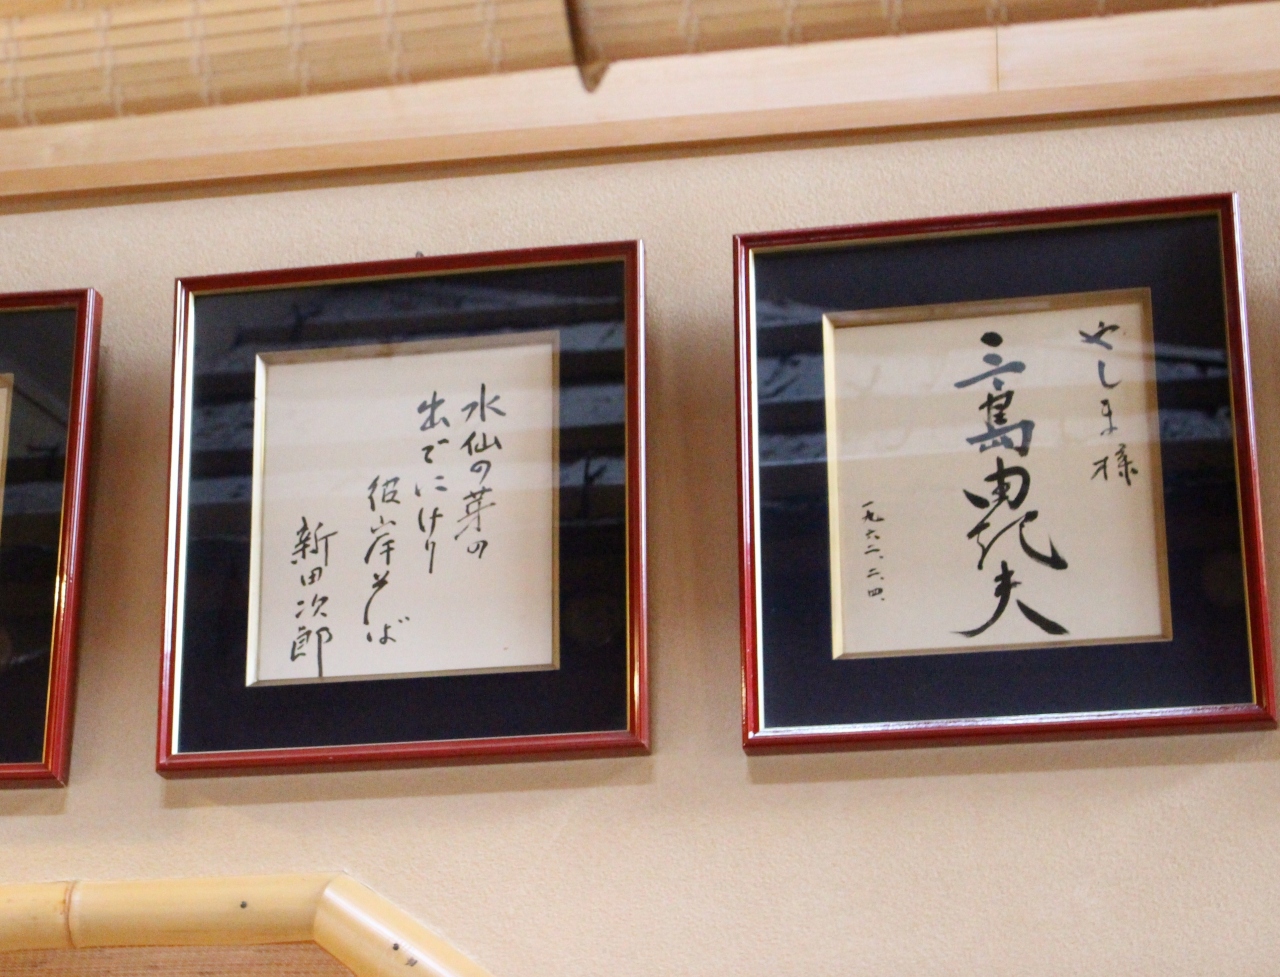 やしま様
三島由紀夫
一九六二、二、四、
水仙の芽の
出でにけり
彼岸そば
新田次郎